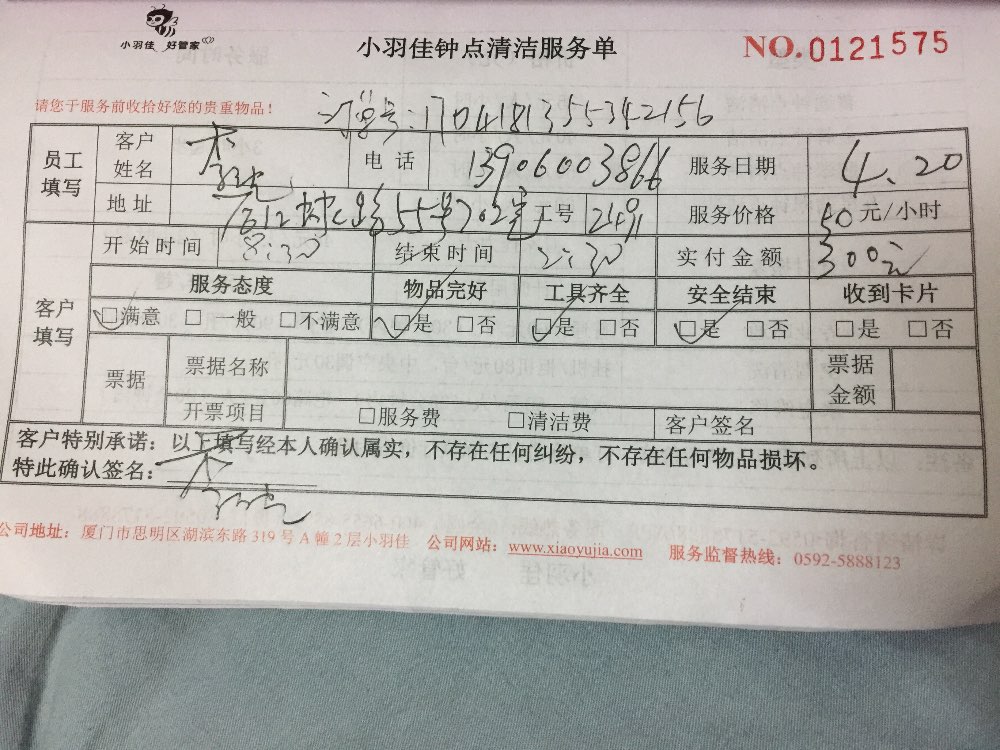 小羽佳 好管家
小羽佳钟点清洁服务单
NO.0121575
请您于服务前收拾好您的贵重物品！
订单号:1704181355342156
员工填写 客户姓名 电话 13906003866 服务日期 4.20
地址 55号702室 工号 服务价格 50元/小时
客户填写 开始时间 8:30 结束时间 2:30 实付金额 300元
服务态度 物品完好 工具齐全 安全结束 收到卡片
☑满意 □一般 □不满意 ☑是 □否 ☑是 □否 ☑是 □否 □是 □否
票据 票据名称 票据金额
开票项目 □服务费 □清洁费 客户签名
客户特别承诺：以上填写经本人确认属实，不存在任何纠纷，不存在任何物品损坏。
特此确认签名：
公司地址：厦门市思明区湖滨东路319号A幢2层小羽佳 公司网站：www.xiaoyujia.com 服务监督热线：0592-5888123